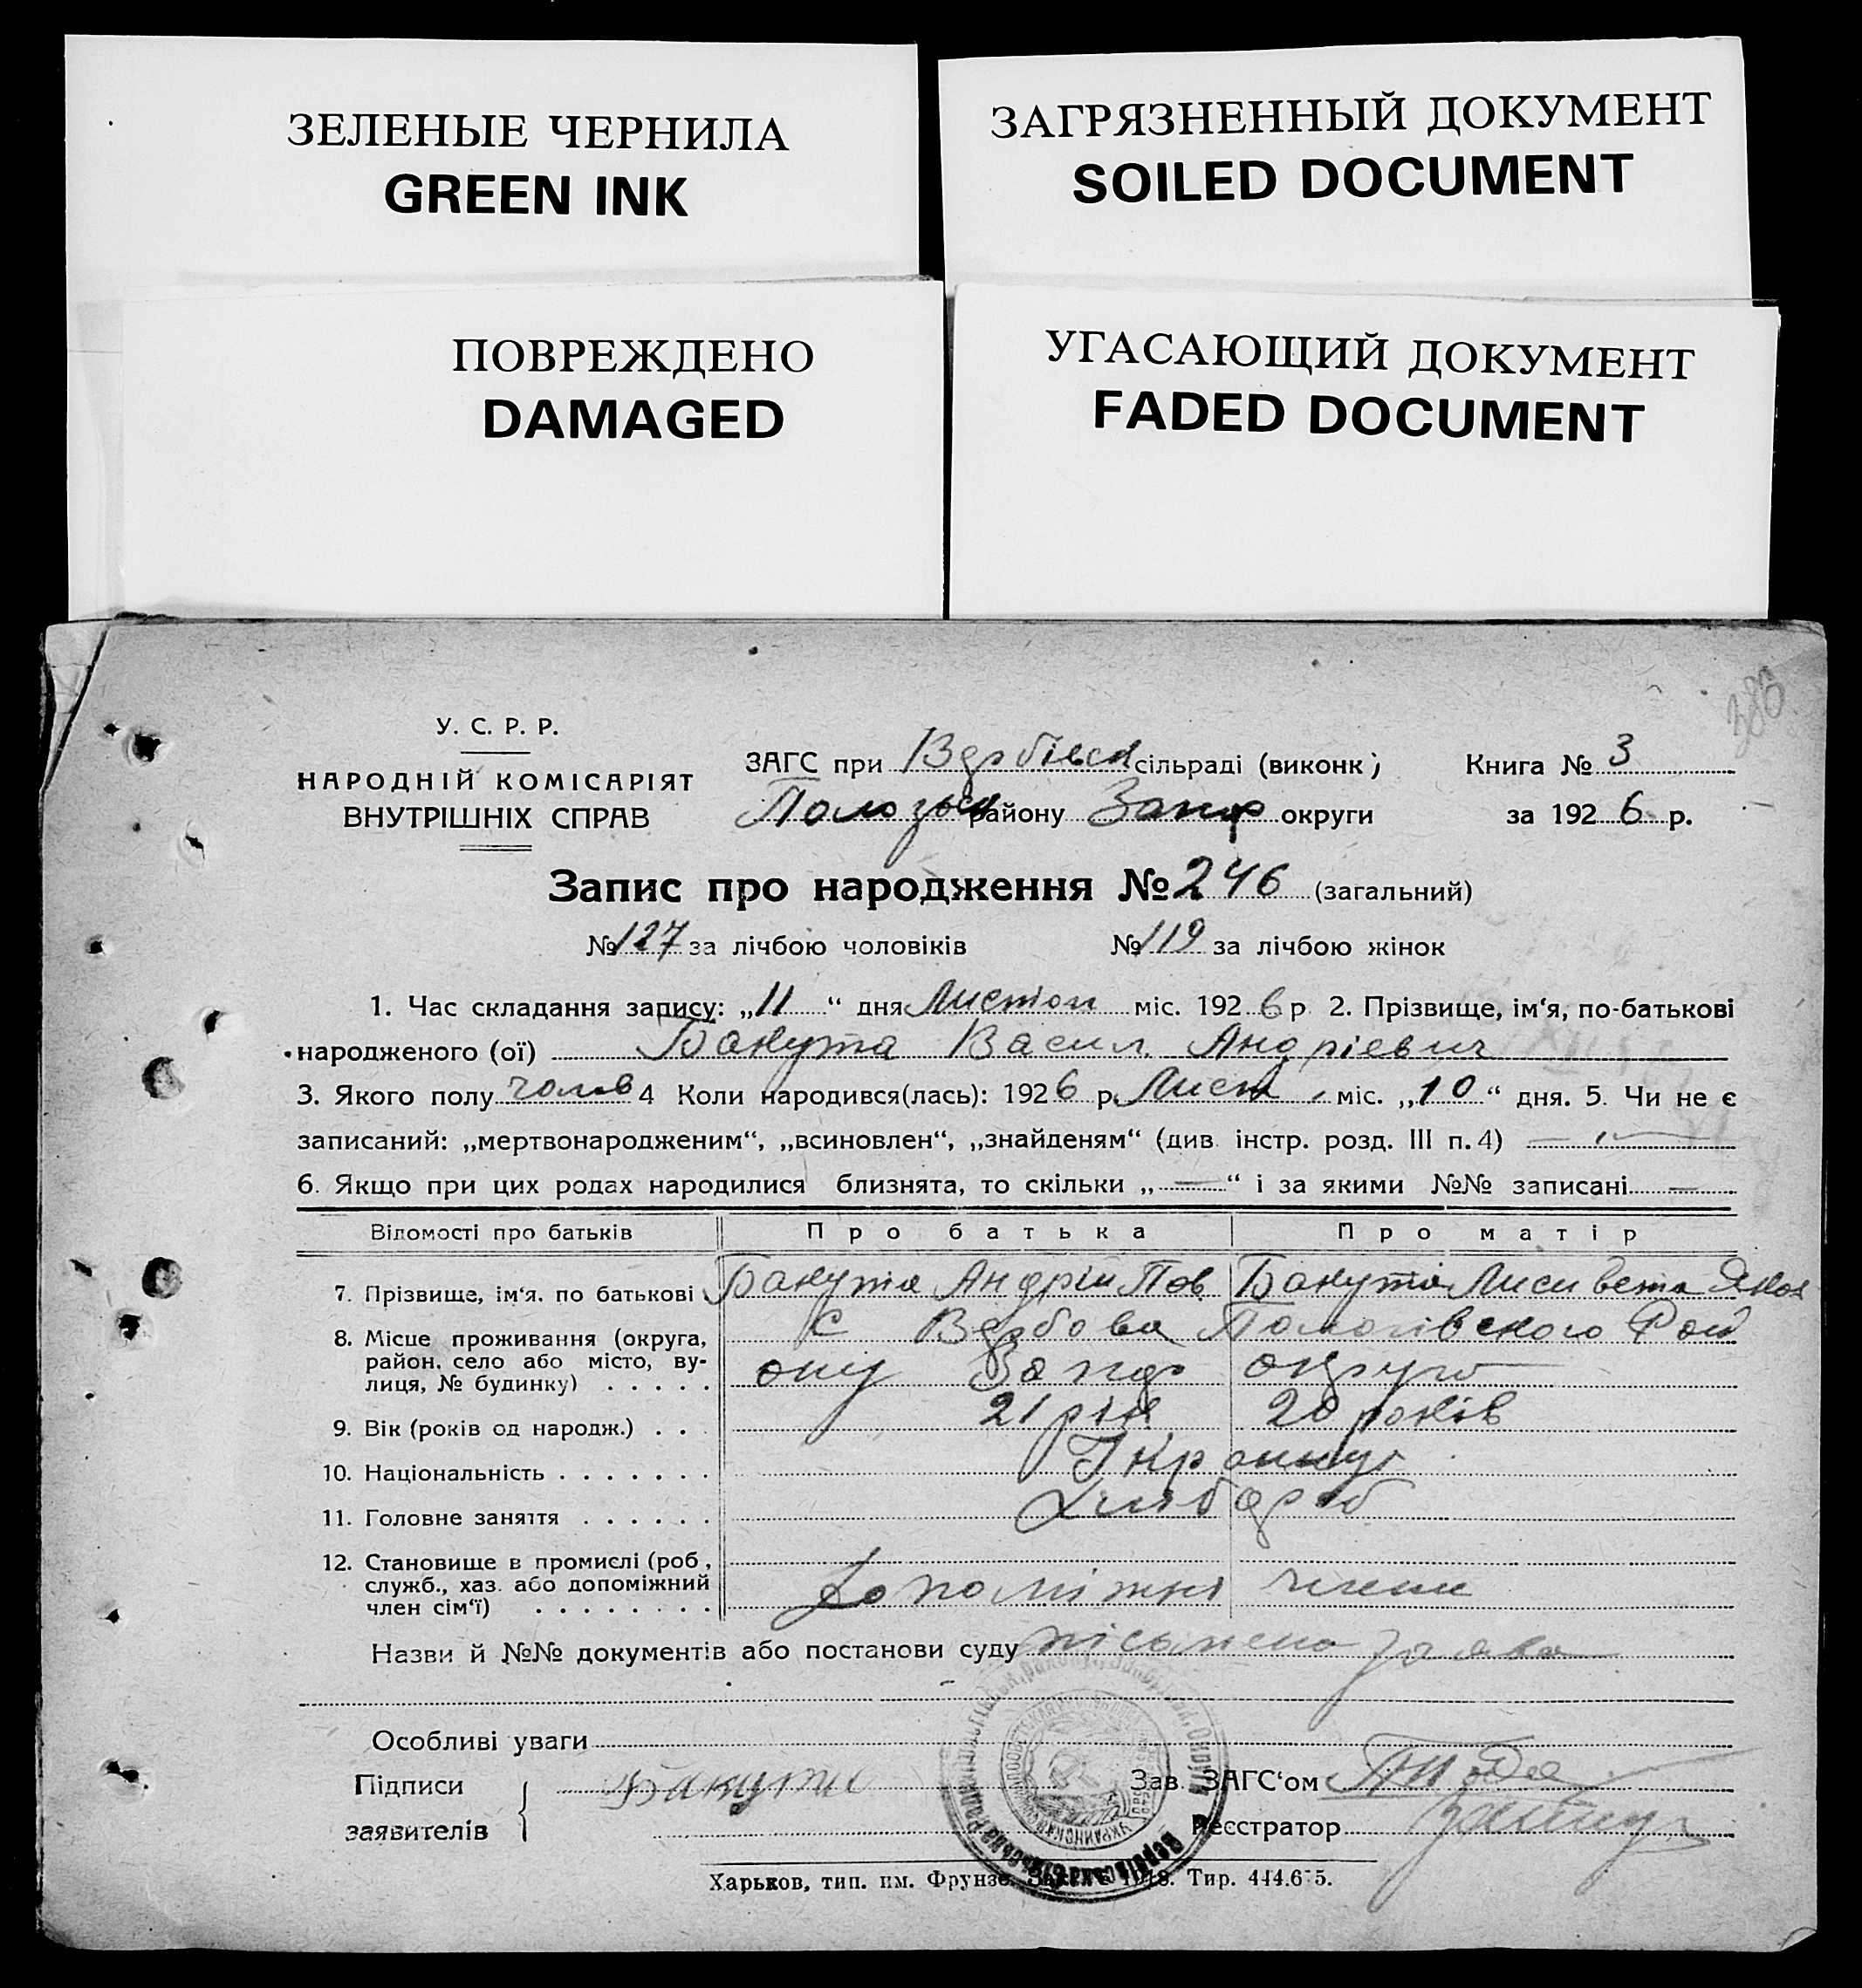 ЗЕЛЕНЫЕ ЧЕРНИЛА
GREEN INK
ЗАГРЯЗНЕННЫЙ ДОКУМЕНТ
SOILED DOCUMENT
ПОВРЕЖДЕНО
DAMAGED
УГАСАЮЩИЙ ДОКУМЕНТ
FADED DOCUMENT
386
У. С. Р. Р.
НАРОДНІЙ КОМІСАРІЯТ
ВНУТРІШНІХ СПРАВ
ЗАГС при Вербівск сільраді (виконк)
Пологськ району Запор округи
Книга № 3
за 1926 р.
Запис про народження № 246 (загальний)
№ 127 за лічбою чоловіків № 119 за лічбою жінок
1. Час складання запису: „11“ дня Листоп міс. 1926 р 2. Прізвище, ім‘я, по-батькові
народженого (ої) Бакута Васил Андрієвич
3. Якого полу чолов 4 Коли народився(лась): 1926 р. Лист. міс. „10“ дня. 5. Чи не є
записаний: „мертвонародженим“, „всиновлен“, „знайденям“ (див. інстр. розд. III п. 4) —
6. Якщо при цих родах народилися близнята, то скільки „—“ і за якими №№ записані —
Відомості про батьків Про батька Про матір
7. Прізвище, ім‘я. по батькові Бакута Андрій Пав Бакута Лисивета Яков
8. Місце проживання (округа, район. село або місто, вулиця, № будинку) с Вербова Пологівского Рай
ону Запор округи
9. Вік (років од народж.) 21 рік 20 років
10. Національність Украинці
11. Головне заняття Хлібороб
12. Становище в промислі (роб., служб., хаз. або допоміжний член сім‘ї) Допоміжні члени
Назви й №№ документів або постанови суду письмена заява
Особливі уваги
Підписи заявителів Бакута
Зав. ЗАГС‘ом
Реєстратор
Харьков, тип. им. Фрунзе. Тир. 444.6